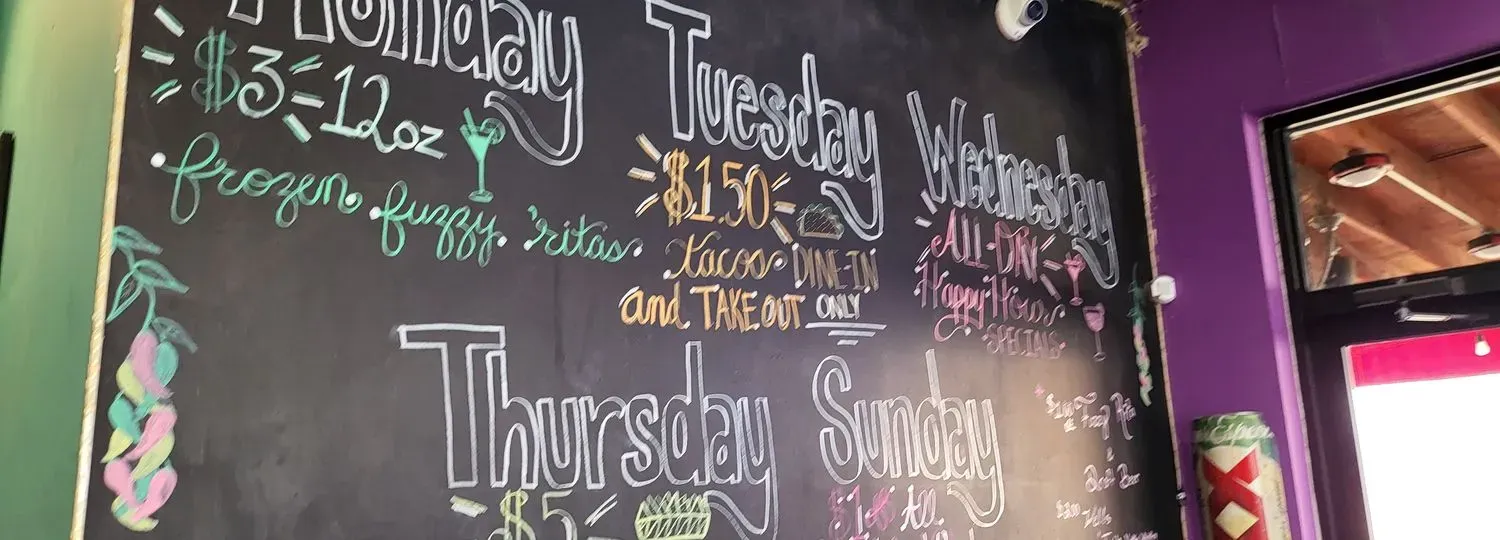 Monday
$3 12oz
frozen fuzzy 'ritas
Tuesday
$1.50
tacos DINE-IN
and TAKE OUT ONLY
Wednesday
ALL-DAY
Happy Hour
SPECIALS
Thursday
$5
Sunday
All
&
Draft Beer
Wells